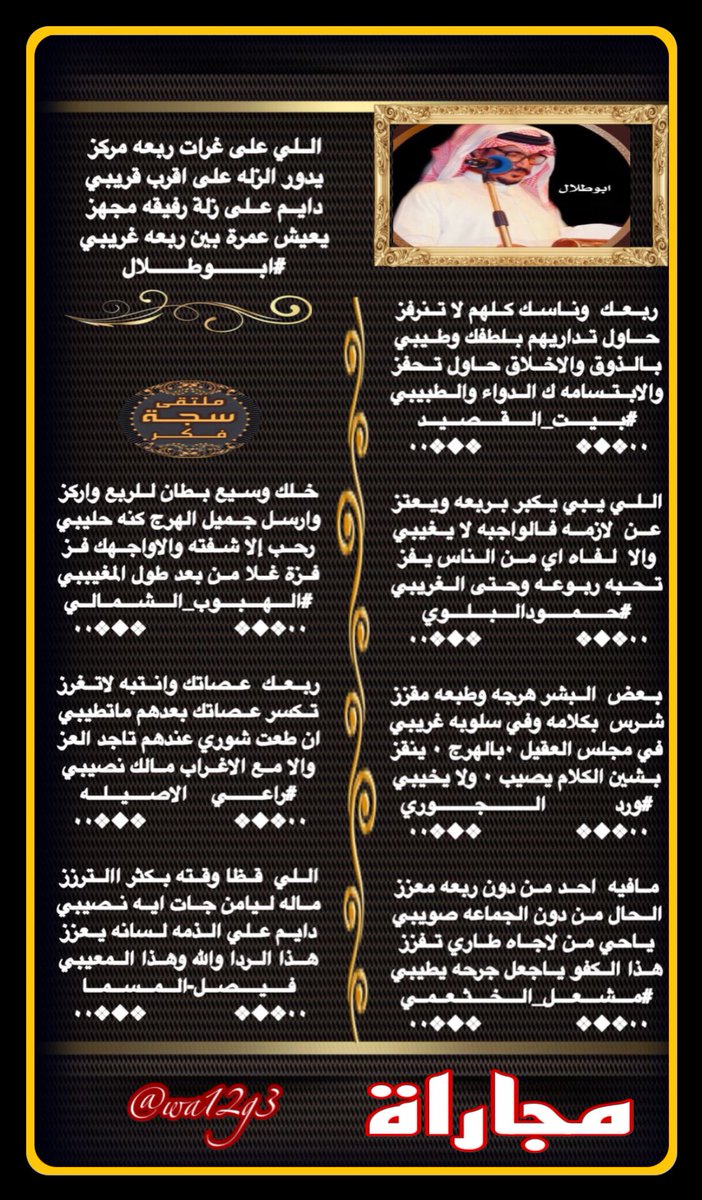 ابوطلال
اللي على غرات ربعه مركز
يدور الزله على اقرب قريبي
دايم على زلة رفيقه مجهز
يعيش عمرة بين ربعه غريبي
#ابوطلال
ربعك وناسك كلهم لا تنرفز
حاول تداريهم بلطفك وطيبي
بالذوق والاخلاق حاول تحفز
والابتسامه ك الدواء والطبيبي
#بيت_القصيد
اللي يبي يكبر بربعه ويعتز
عن لازمه فالواجبه لا يغيبي
والا لفاه اي من الناس يفز
تحبه ربوعه وحتى الغريبي
#حمودالبلوي
بعض البشر هرجه وطبعه مقزز
شرس بكلامه وفي سلوبه غريبي
في مجلس العقيل ٠بالهرج ٠ ينقز
بشين الكلام يصيب ٠ ولا يخيبي
#ورد الجوري
مافيه احد من دون ربعه معزز
الحال من دون الجماعه صويبي
ياحي من لاجاه طاري تفزز
هذا الكفو ياجعل جرحه يطيبي
#مشعل_الخثعمي
ملتقى
سجة
فكر
خلك وسيع بطان للربع واركز
وارسل جميل الهرج كنه حليبي
رحب إلا شفته والاواجهك فز
فزة غلا من بعد طول المغيبي
#الهبوب_الشمالي
ربعك عصاتك وانتبه لاتغرز
تكسر عصاتك بعدهم ماتطيبي
ان طعت شوري عندهم تاجد العز
والا مع الاغراب مالك نصيبي
#راعي الاصيله
اللي قظا وقته بكثر االترزز
ماله ليامن جات ايه نصيبي
دايم علي الذمه لسانه يعزز
هذا الردا والله وهذا المعيبي
فيصل-المسما
مجاراة
@wa12g3